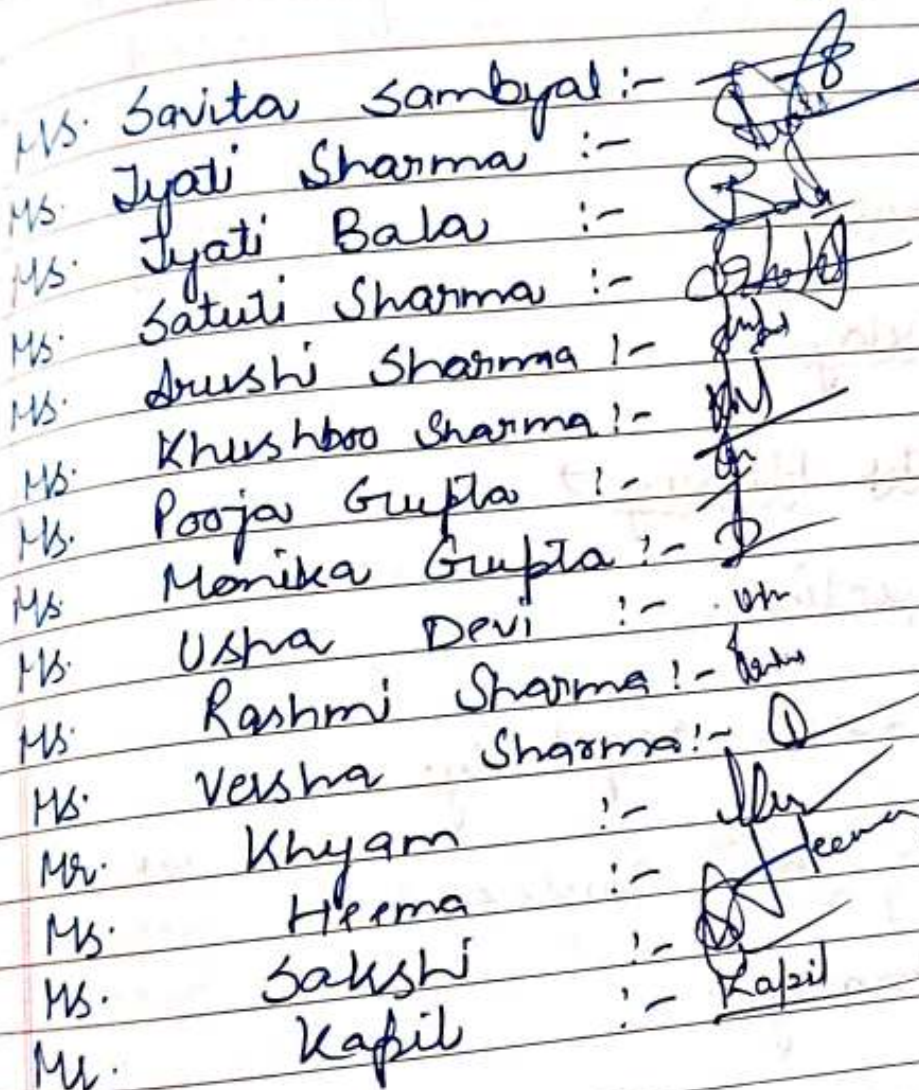 Ms. Savita Sambyal :-
Ms. Jyati Sharma :-
Ms. Jyati Bala :- Bala
Ms. Satuti Sharma :-
Ms. Arushi Sharma :-
Ms. Khushboo Sharma :-
Ms. Pooja Gupta :-
Ms. Monika Gupta :-
Ms. Usha Devi :-
Ms. Rashmi Sharma :-
Ms. Versha Sharma :-
Mr. Khyam :-
Ms. Heema :- Heema
Ms. Sakshi :-
Mr. Kapil :- Kapil